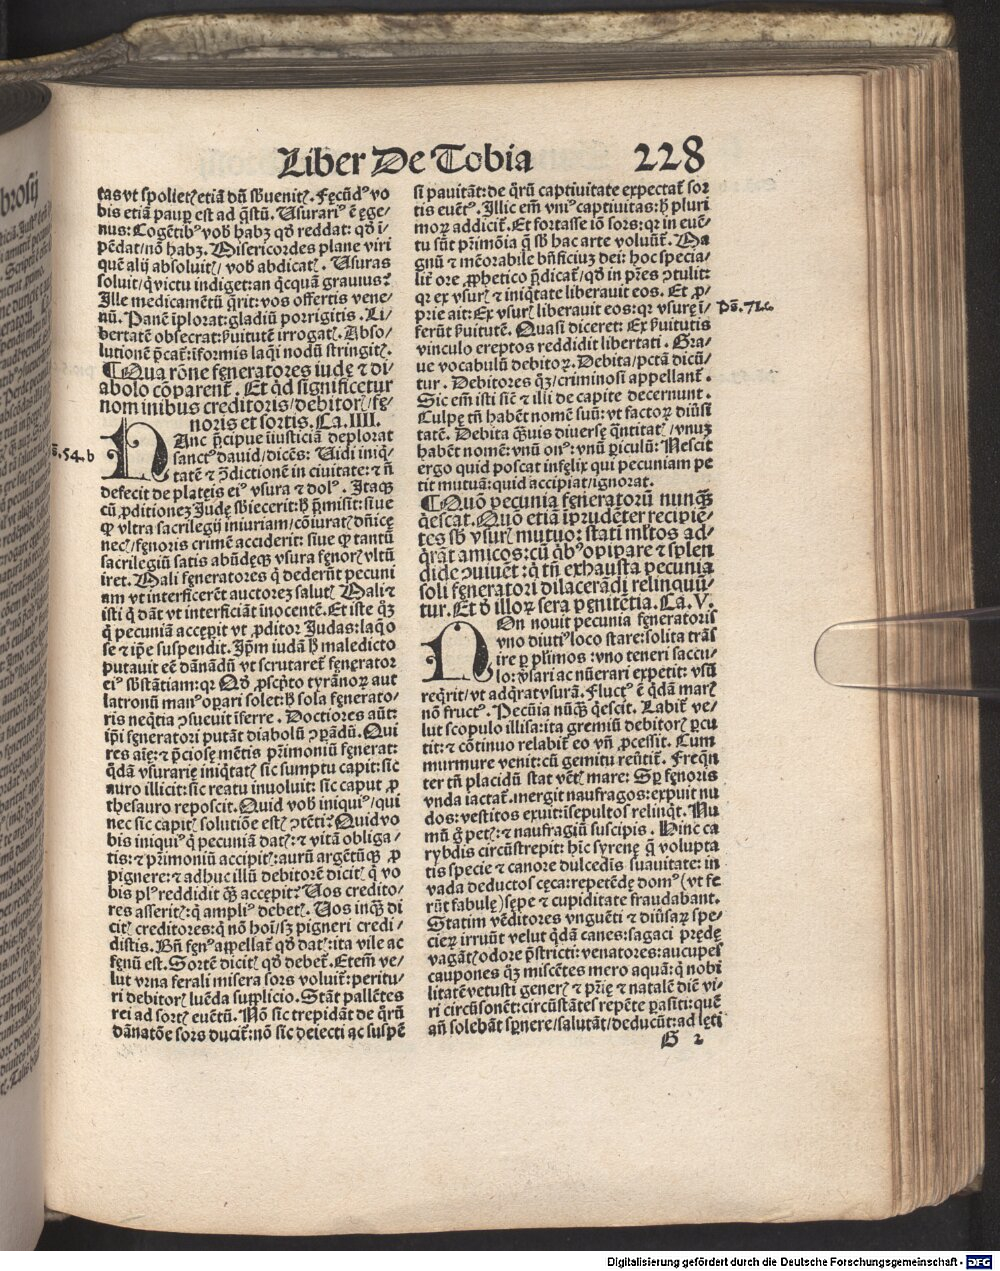 Liber De Tobia 228
tas vt spoliet⁊ etiā dū sb̄uenit⁊. Fęcūdꝰ vo
bis etiā paup̱ est ad q̄stū. Usurariꝰ ē ęge/
nus: Cogētibꝰ vob̄ habꝫ qd̄ reddat: qd̄ ī/
pēdat/nō habꝫ. Misericordes plane viri
quē alij absoluit⁊/ vob̄ abdicat⁊. Usuras
soluit/q̇ victu indiget: an qcq̄uam grauius?
Ille medicamētū q̄rit: vos offertis vene/
nū. Panē īplorat: gladiū porrigitis. Li/
bertatē obsecrat: ẜuitutē irrogat⁊. Abso/
lutionē p̄cat̄: īformis laq̄i nodū stringit⁊.
¶Qua rōne fęneratores iudę ⁊ di/
abolo cōparent̄. Et qd̄ significetur
nominibus creditoris/debitor⁊/fę/
noris et sortis. Ca. IIII.
ps.54.b
NUnc p̄cipue iusticiā deplorat
sanctꝰ dauid/dicēs: Uidi iniq̇/
tatē ⁊ ꝯdictionē in ciuitate: ⁊ nō
defecit de platęis eiꝰ vsura ⁊ dolꝰ. Itaqꝫ
cū ꝓditionez Judę sb̄iecerit: ħ p̄misit: siue
ꝙ vltra sacrilegij iniuriam/cōiurat⁊ dn̄icę
nec⁊/fęnoris crimē acciderit: siue ꝙ tantū
sacrilegiū satis abūdeqꝫ vsura fęnor⁊ vltū
iret. Mali fęneratores q̇ dederūt pecuni
am vt interficerēt auctorez salut⁊. Mali ⁊
isti q̇ dāt vt interficiāt inocentē. Et iste qꝫ
q̇ pecuniā accępit vt ꝓditor Judas: laq̇o
se ⁊ ip̄e suspendit. Ip̄m iudā ħ maledicto
putauit eē dānādū vt scrutaret̄ fęnerator
eiꝰ sb̄stātiam: qꝛ Qd̄ ꝓscp̄to tyrānoꝝ aut
latronū manꝰ opari solet: ħ sola fęnerato/
ris neq̇tia ꝯsueuit īferre. Doctiores aūt:
ip̄i fęneratori putāt diabolū ꝯparādū. Qui
res aīę: ⁊ p̄ciosę mētis p̄rimoniū fęnerat:
q̄dā vsurarię iniq̇tat⁊ sic sumptu capit: sic
auro illicit: sic reatu inuoluit: sic caput ꝓ
thesauro reposcit. Quid vob̄ iniquiꝰ/qui
nec sic capit⁊ solutiōe est⁊ ꝯtēti? Quid vo
bis iniquiꝰ q̇ pecuniā dat⁊: ⁊ vitā obliga/
tis: ⁊ p̄rimoniū accipit⁊: aurū argētūqꝫ ꝓ
pignere: ⁊ adhuc illū debitorē dicit⁊ q̇ vo
bis plꝰ reddidit qꝫ̄ accępit? Uos credito/
res asserit⁊: q̇ ampliꝰ debet⁊. Uos inqꝫ̄ di
cit⁊ creditores: q̇ nō hoī/sꝫ pigneri credi/
distis. Bn̄ fęnꝰ appellat̄ qd̄ dat⁊: ita vile ac
fęnū est. Sortē dicit⁊ qd̄ debet̄. Etem̄ ve/
lut vrna ferali misera sors voluit̄: peritu/
ri debitor⁊ luēda supplicio. Stāt pallētes
rei ad sort⁊ euētū. Nō sic trepidāt de q̄rū
dānatōe sors ducit̄: nō sic deiecti ac suspē
si pauitāt: de q̄rū captiuitate expectat̄ sor
tis euētꝰ. Illic em̄ vniꝰ captiuitas: ħ pluri
moꝝ addicit̄. Et fortasse iō sors: qꝛ in euē/
tu sūt p̄rimōia q̄ sb̄ hac arte voluūt̄. Ma
gnū ⁊ mēorabile bn̄ficiuz dei: hoc specia/
lit̄ ore ꝓphetico p̄dicat̄/qd̄ in pr̄es ꝯtulit:
qꝛ ex vsur⁊ ⁊ iniq̇tate liberauit eos. Et ꝓ/
prie ait: Ex vsur⁊ liberauit eos: qꝛ vsurę ī/
ferūt ẜuitutē. Quasi diceret: Ex ẜuitutis
Ps.71.c
vinculo ereptos reddidit libertati. Gra/
ue vocabulū debitoꝝ. Debita/pctā dicū/
tur. Debitores qꝫ/criminosi appellant̄.
Sic em̄ isti siē ⁊ illi de capite decernunt.
Culpę tn̄ habēt nomē suū: vt factoꝝ diūsi
tatē. Debita qꝫ̄uis diuersę q̄ntitat⁊/vnuz
habēt nomē: vnū onꝰ: vnū p̱iculū: Nescit
ergo quid poscat infęlix qui pecuniam pe
tit mutuā: quid accipiat/ignorat.
¶Quō pecunia fęneratorū nunqꝫ̄
q̇escat. Quō etiā īprudēter recipiē/
tes sb̄ vsur⁊ mutuo: stati ml̄tos ad/
q̇rāt amicos: cū q̇bꝰ opipare ⁊ splen
dide ꝯuiuēt: q̇ tn̄ exhausta pecunia
soli fęneratori dilacerādi relinquū/
tur. Et d̄ illoꝝ sera pęnitētia. Ca. V.
NOn nouit pecunia fęneratoris
vno diutiꝰ loco stare: solita trās
ire p̱ pl̄imos: vno teneri saccu/
lo: v̄sari ac nūerari expetit: vsū
req̇rit/vt adq̇rat vsurā. Fluctꝰ ē q̇dā mar⁊
nō fructꝰ. Pecūia nūqꝫ̄ q̇escit. Labit̄ ve/
lut scopulo illisa: ita gremiū debitor⁊ p̱cu
tit: ⁊ cōtinuo relabit̄ eo vn̄ ꝓcessit. Cum
murmure venit: cū gemitu reūtit̄. Freq̄n
ter tn̄ placidū stat vēt⁊ mare: Sp̱ fęnoris
vnda iactat̄. mergit naufragos: expuit nu
dos: vestitos exuit: īsepultos relinq̇t. Nu
mū ḡ pet⁊: ⁊ naufragiū suscipis. Hinc ca
rybdis circūstrepit: hīc syrenę q̄ volupta
tis specie ⁊ canore dulcedīs suauitate: in
vada deductos cęca: repetēdę domꝰ (vt fe
rūt fabulę) sępe ⁊ cupiditate fraudabant.
Statim vēditores vnguēti ⁊ diūsaꝝ spe/
cieꝝ irruūt velut q̇dā canes: sagaci prędę
vagāt⁊ odore p̄stricti: venatores: aucupes
caupones qꝫ miscētes mero aquā: q̇ nobi
litatē vetusti gener⁊ ⁊ pr̄ię ⁊ natalē diē vi/
ri circūsonēt: circūstātes repēte p̱asiti: quē
an̄ solebāt sp̱nere/salutāt/deducūt: ad lęti
G 2
Digitalisierung gefördert durch die Deutsche Forschungsgemeinschaft - DFG